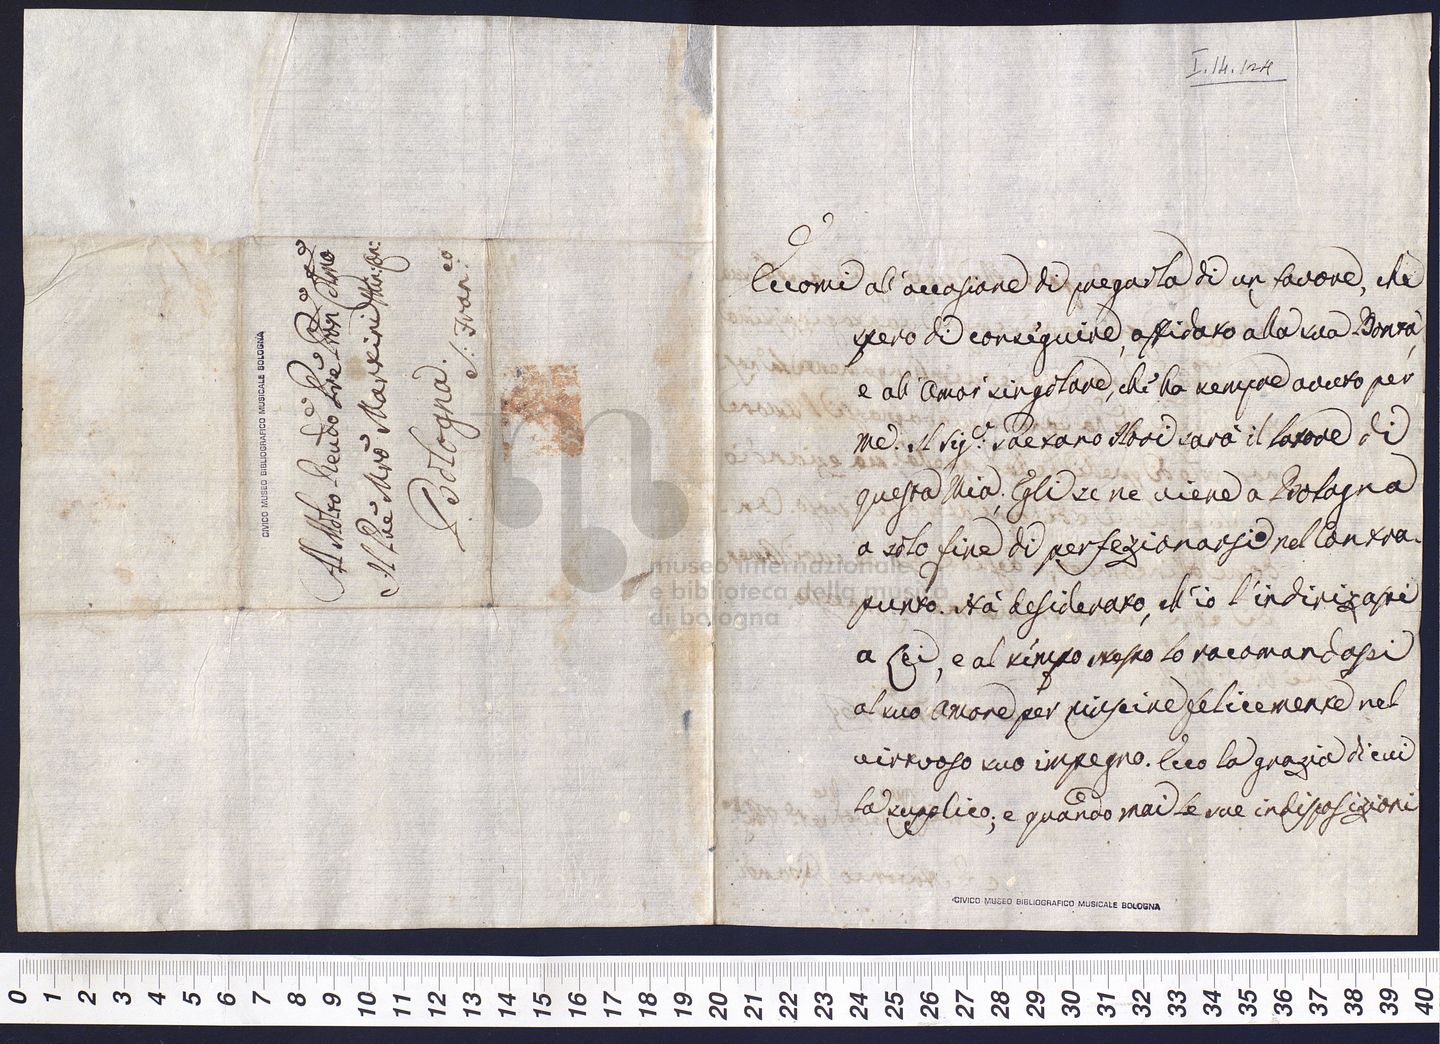 I.14.124
Eccomi all'occasione di pregarla di un favore, che
spero di conseguire, affidato alla sua Bontà,
e all'Amor singolare, che ha sempre avuto per
me. Il Sig.r Gaetano sarà il latore di
questa Mia. Egli se ne viene a Bologna
a solo fine di perfezionarsi nel Contra-
punto. Hà desiderato, ch'io l'indirizassi
a Lei, e al tempo stesso lo racomandassi
al suo Amore per riuscire felicemente nel
virtuoso suo impegno. Ecco la grazia di cui
la supplico; e quando mai le sue indisposizioni
CIVICO MUSEO BIBLIOGRAFICO MUSICALE BOLOGNA
Al Molto Rendo Pre
Il Pre Mro Martini
Bologna.
S: Franco
CIVICO MUSEO BIBLIOGRAFICO MUSICALE BOLOGNA
museo internazionale
e biblioteca della musica
di bologna
0 1 2 3 4 5 6 7 8 9 10 11 12 13 14 15 16 17 18 19 20 21 22 23 24 25 26 27 28 29 30 31 32 33 34 35 36 37 38 39 40